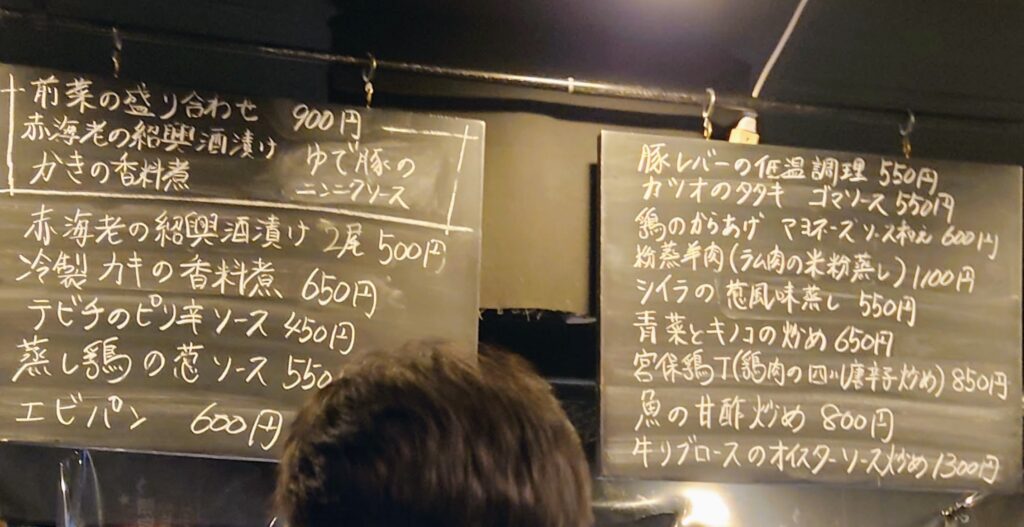 前菜の盛り合わせ 900円
赤海老の紹興酒漬け ゆで豚の
かきの香料煮 ニンニクソース
赤海老の紹興酒漬け 2尾 500円
冷製カキの香料煮 650円
テビチのピリ辛ソース 450円
蒸し鶏の葱ソース 550
エビパン 600円
豚レバーの低温調理 550円
カツオのタタキ ゴマソース 550円
鶏のからあげ マヨネーズソース和え 600円
粉蒸羊肉(ラム肉の米粉蒸し) 1100円
シイラの葱風味蒸し 550円
青菜とキノコの炒め 650円
宮保鶏丁(鶏肉の四川唐辛子炒め) 850円
魚の甘酢炒め 800円
牛リブロースのオイスターソース炒め 1300円